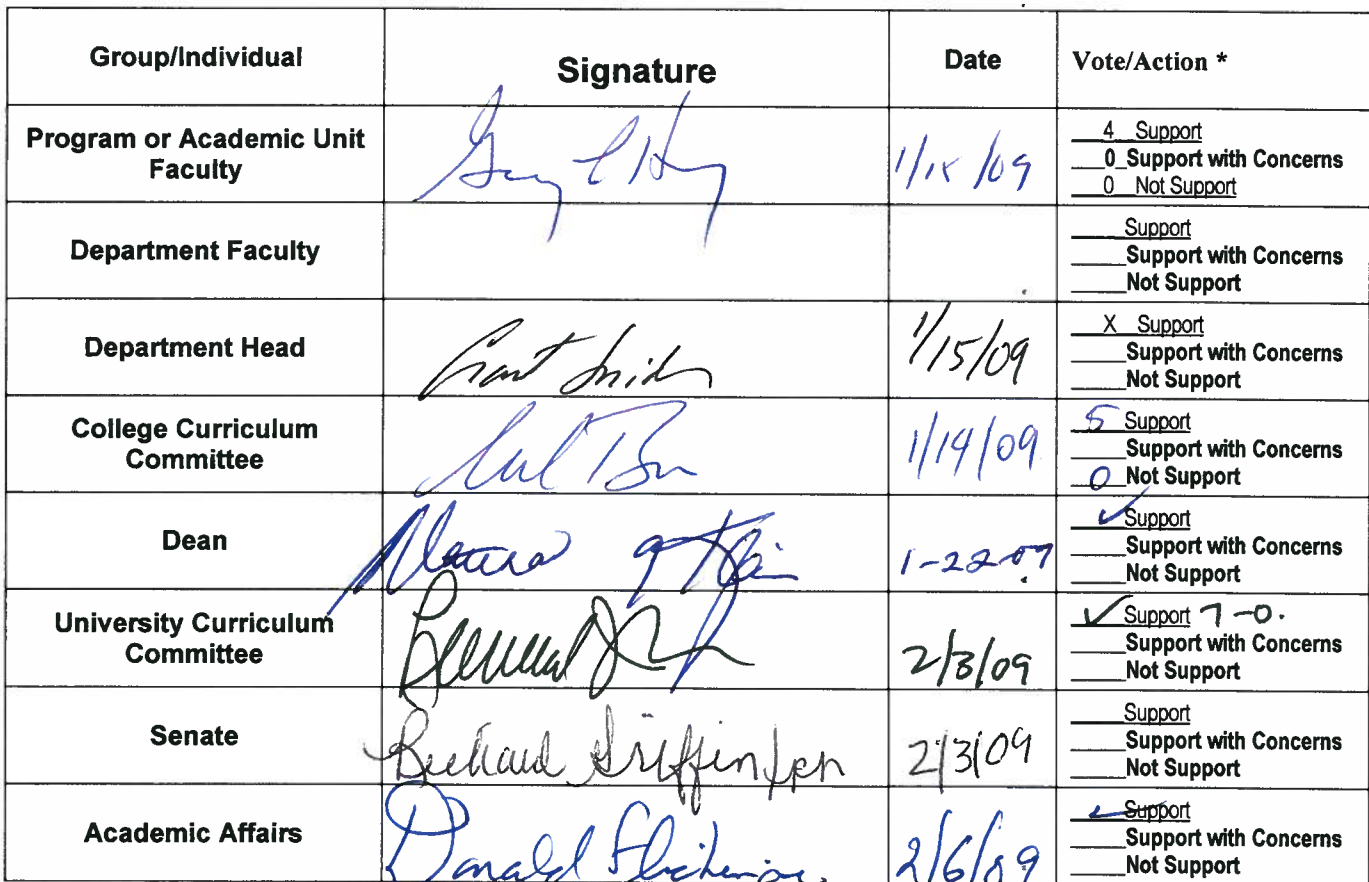 Group/Individual Signature Date Vote/Action *
Program or Academic Unit
Faculty
1/15/09
4 Support
0 Support with Concerns
0 Not Support
Department Faculty
Support
Support with Concerns
Not Support
Department Head
1/15/09
X Support
Support with Concerns
Not Support
College Curriculum
Committee
1/19/09
5 Support
Support with Concerns
0 Not Support
Dean
1-22-09
✓ Support
Support with Concerns
Not Support
University Curriculum
Committee
2/3/09
✓ Support 7-0.
Support with Concerns
Not Support
Senate
Richard Griffin
2/3/09
Support
Support with Concerns
Not Support
Academic Affairs
Donald
2/6/09
✓ Support
Support with Concerns
Not Support